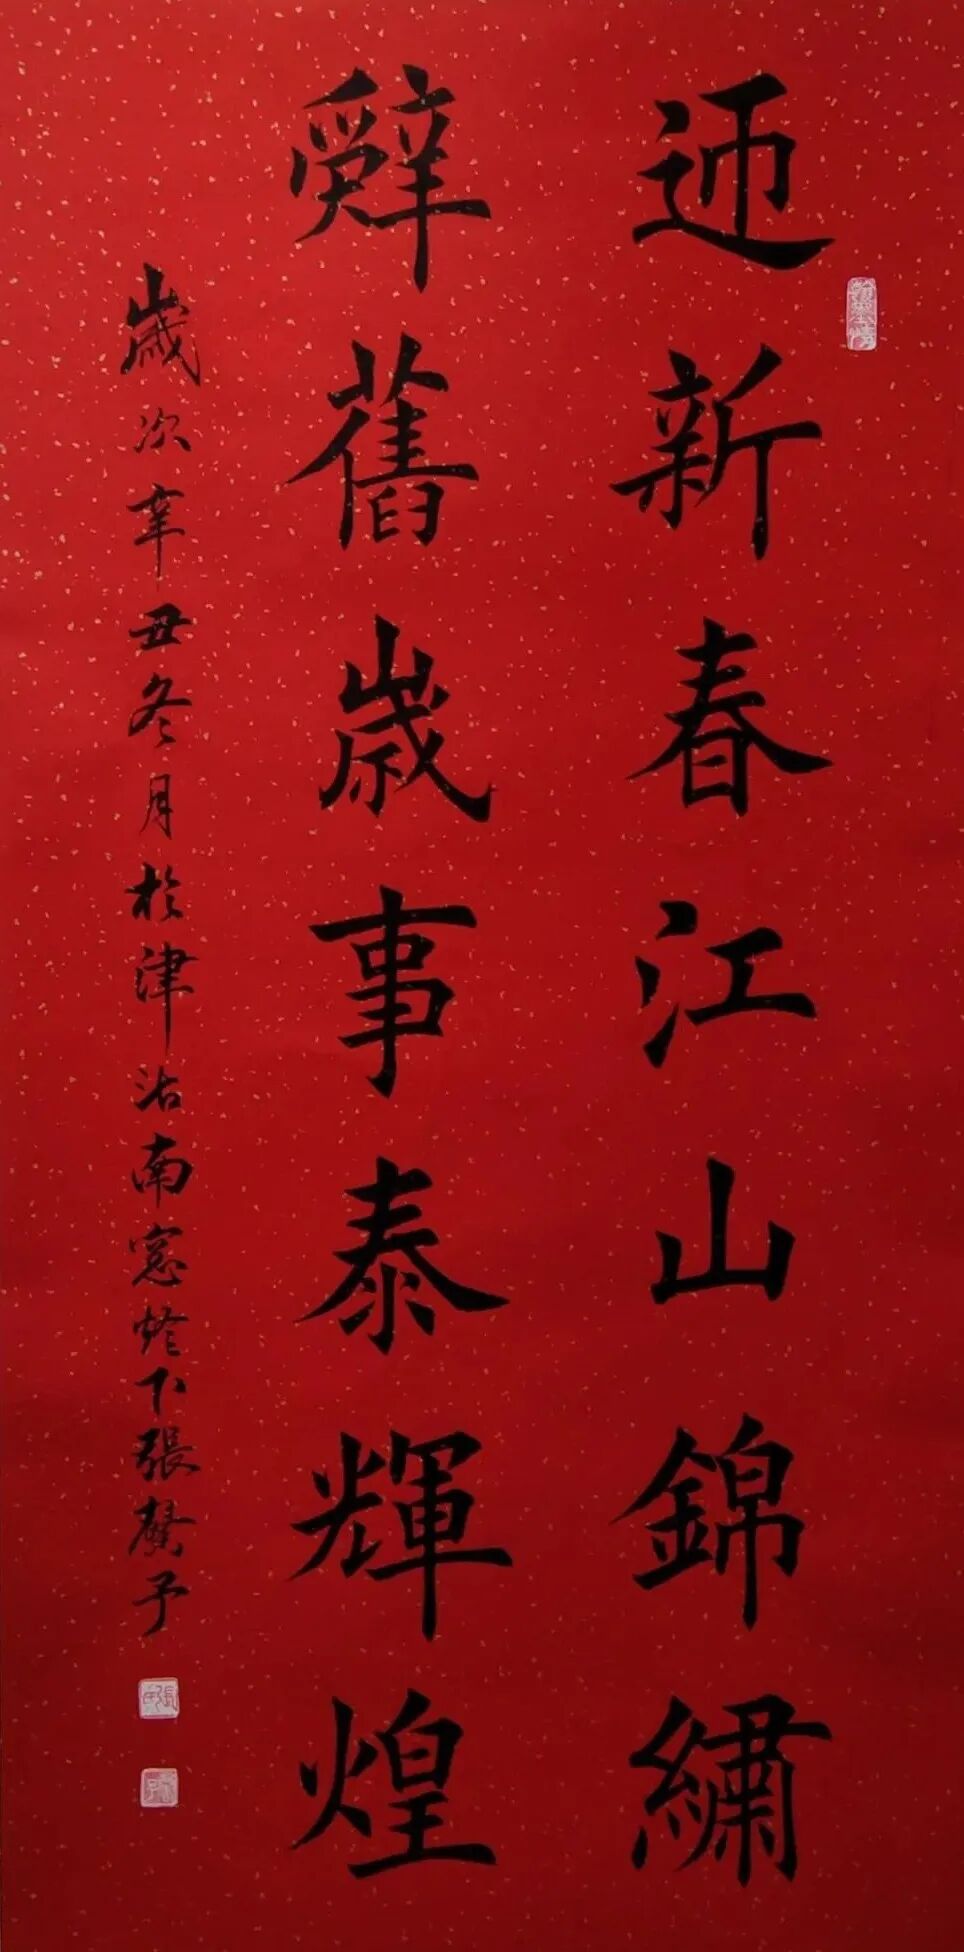 迊新春江山錦繡
辤舊歲事泰輝煌
歲次辛丑冬月於津沽南窓燈下張馨予